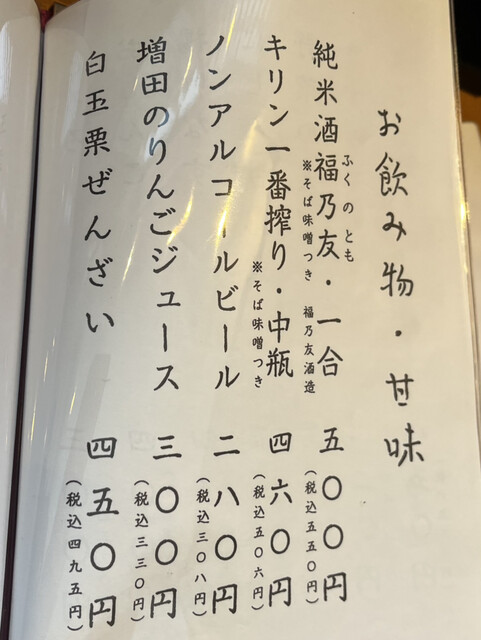 お飲み物・甘味
純米酒福乃友・一合 五〇〇円
ふくのとも
※そば味噌つき 福乃友酒造
(税込五五〇円)
キリン一番搾り・中瓶 四六〇円
※そば味噌つき
(税込五〇六円)
ノンアルコールビール 二八〇円
(税込三〇八円)
増田のりんごジュース 三〇〇円
(税込三三〇円)
白玉栗ぜんざい 四五〇円
(税込四九五円)